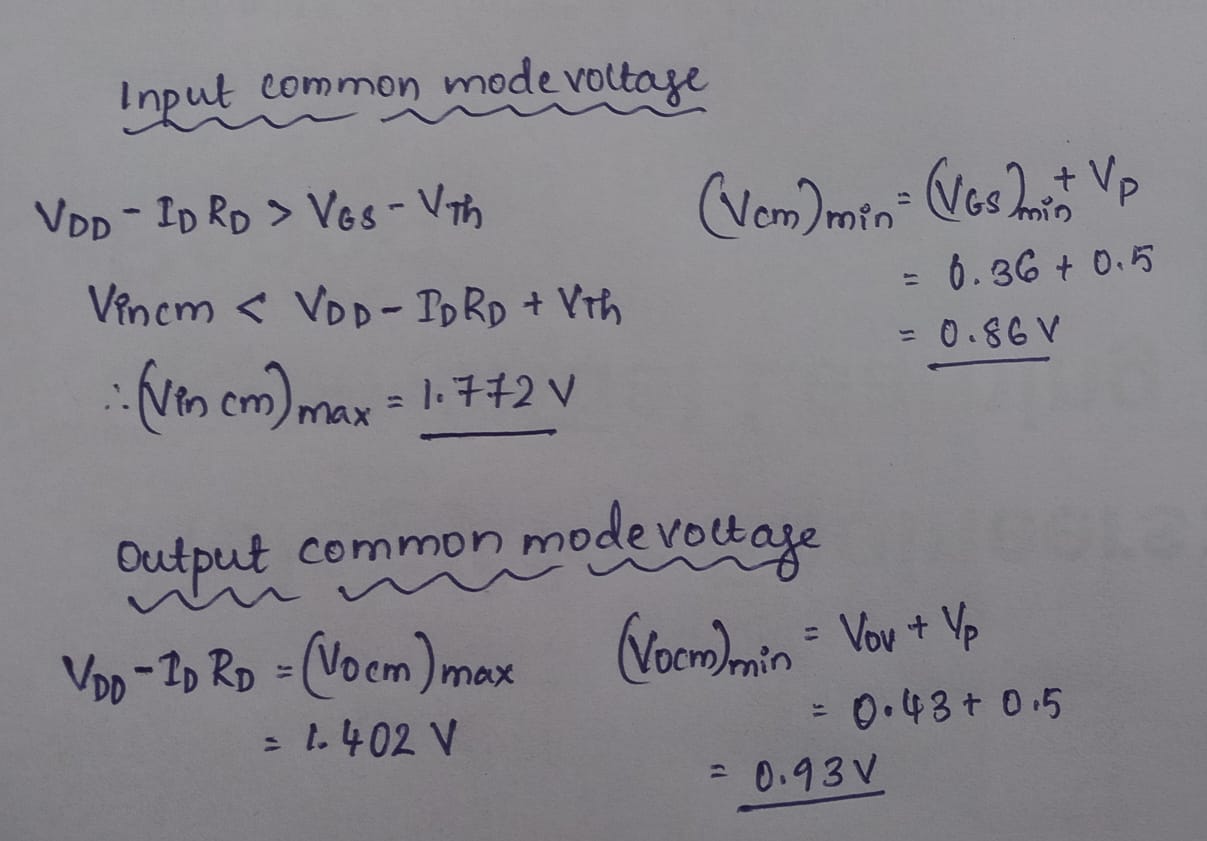 Input common mode voltage
VDD - ID RD > VGS - VTh
Vincm < VDD - IDRD + VTh
∴ (Vin cm)max = 1.772 V
(Vcm)min = (VGS)min + VP
= 0.36 + 0.5
= 0.86 V
Output common mode voltage
VDD - ID RD = (Vocm)max
= 1.402 V
(Vocm)min = VOV + VP
= 0.43 + 0.5
= 0.93 V